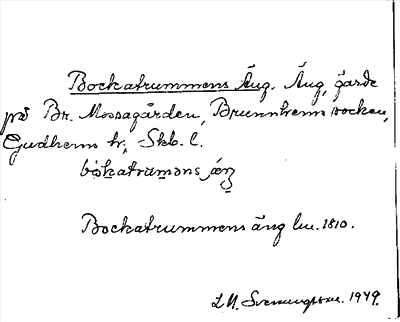 Bockatrummens Äng. Äng, gärde
på Br. Mossagården, Brunnhems socken,
Gudhems hr, Skb. l.
bòkatruməns ǽŋ
Bockatrummens äng lm. 1810.
Svenungsson. 1949.